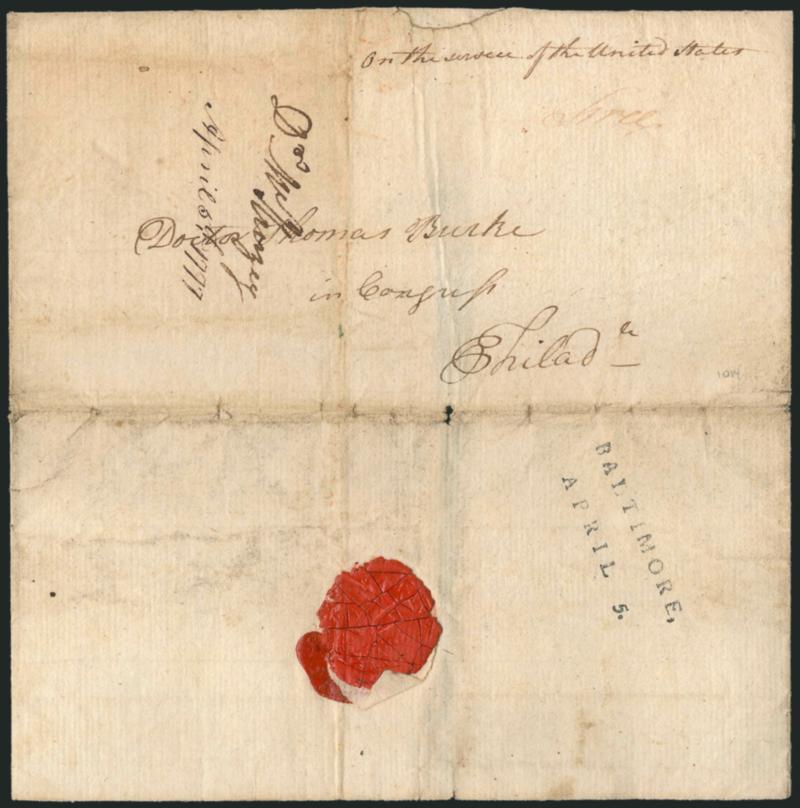 On the service of the United States
Free
April 5th 1777
Doctor Thomas Burke
in Congress
Philad^a
BALTIMORE,
APRIL 5.